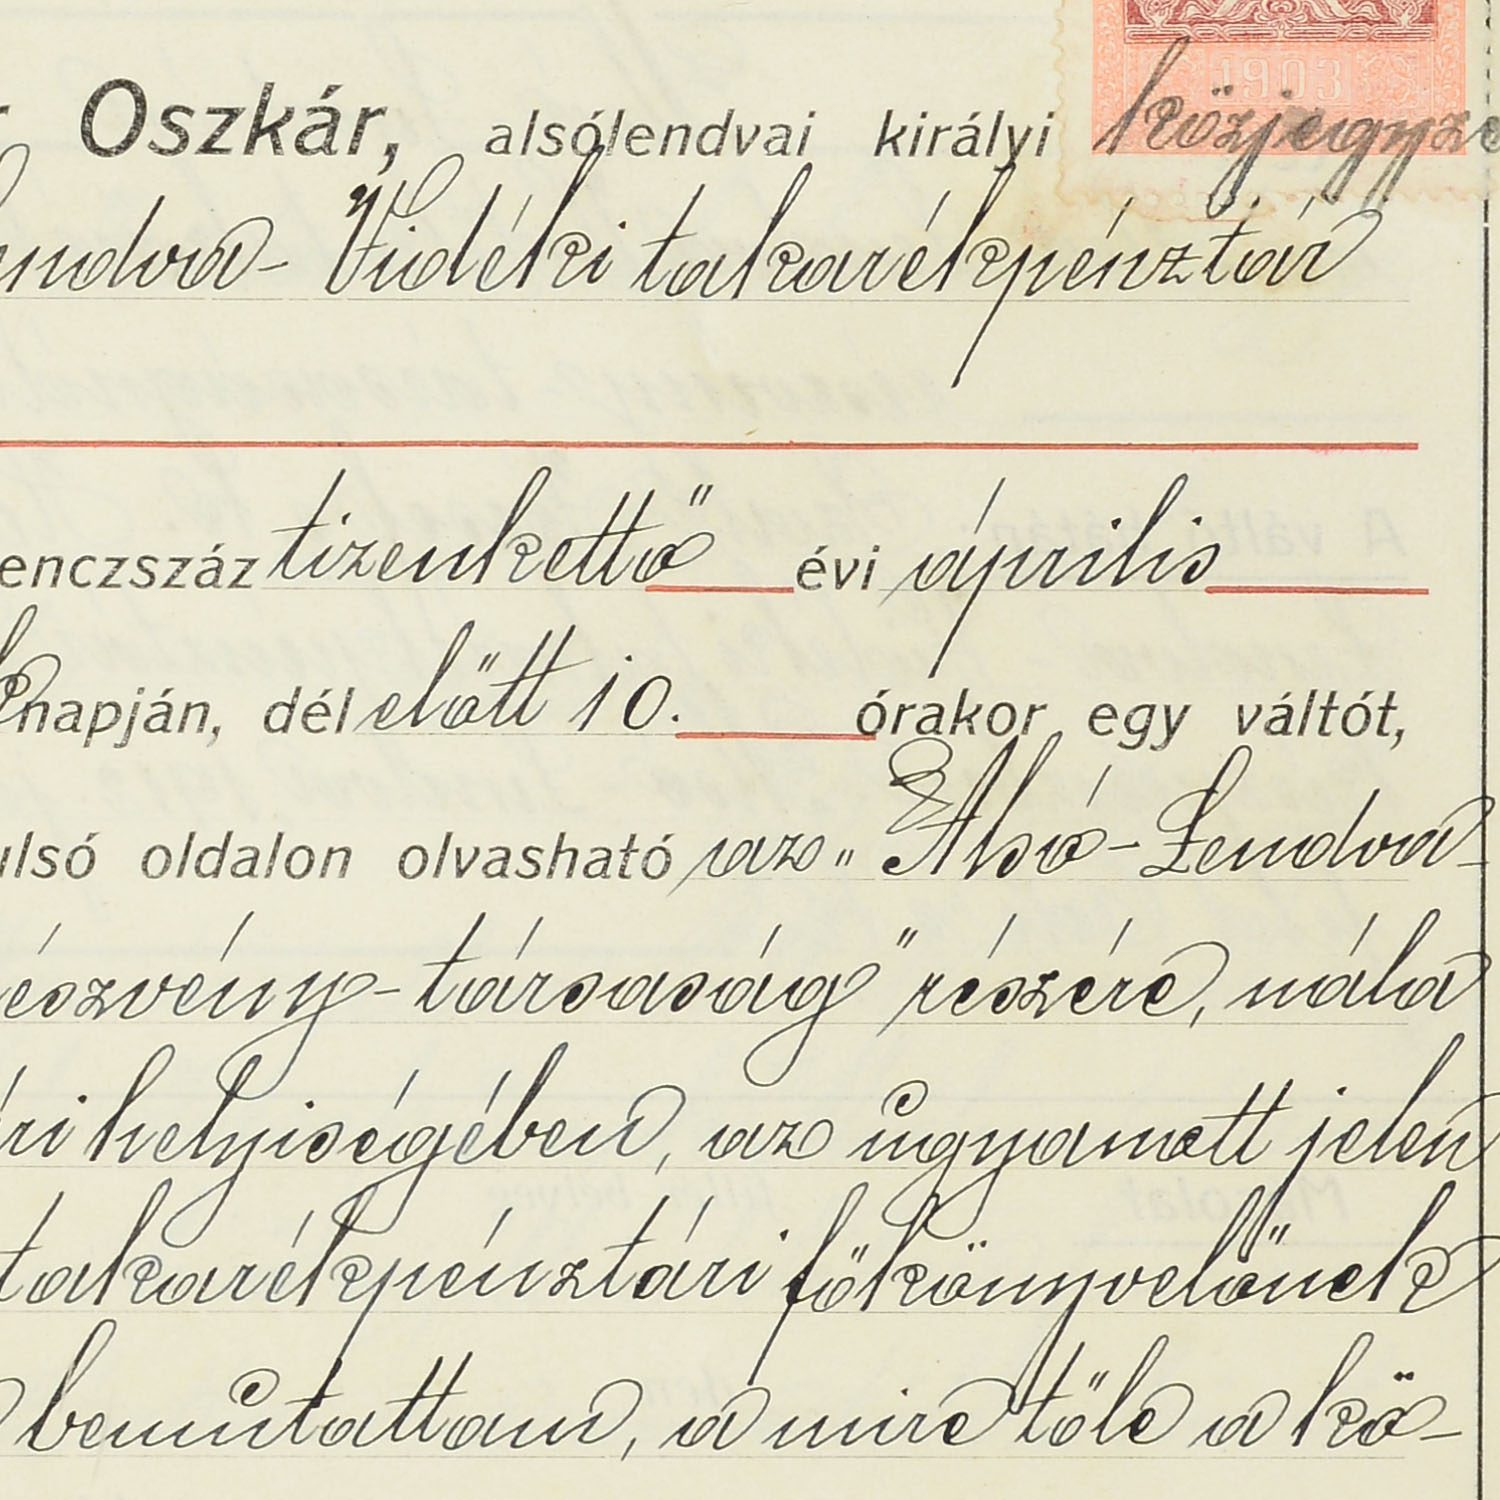 1903
Oszkár, alsólendvai királyi közjegyző
Lendva-Vidéki takarékpénztár
enczszáz tizenkettő évi április
napján, dél előtt 10. órakor egy váltót,
ulsó oldalon olvasható az „Alsó-Lendva-
részvény-társaság" részére, nála
ri helyiségében, az ugyanott jelen
takarékpénztári főkönyvelőnek
bemutattam, a mire tőle a kö-